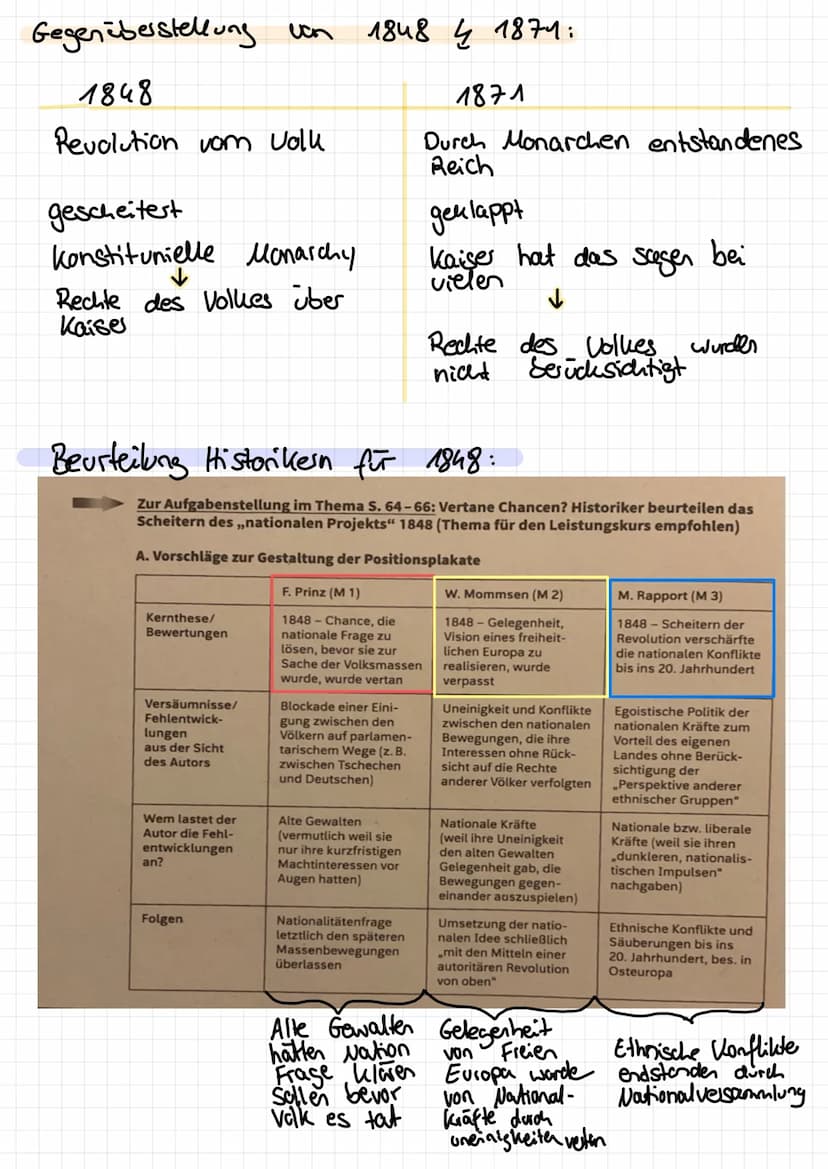 Gegenüberstellung von 1848 & 1871:
1848
1871
Revolution vom Volk
Durch Monarchen entstandenes
Reich
gescheitert
geklappt
Konstitunielle Monarchy
Kaiser hat das sagen bei
vielen
↓
↓
Rechte des Volkes über
Kaiser
Rechte des Volkes wurden
nicht berücksichtigt
Beurteilung Historikern für 1848:
Zur Aufgabenstellung im Thema S. 64–66: Vertane Chancen? Historiker beurteilen das
Scheitern des „nationalen Projekts“ 1848 (Thema für den Leistungskurs empfohlen)
A. Vorschläge zur Gestaltung der Positionsplakate
F. Prinz (M 1)
W. Mommsen (M 2)
M. Rapport (M 3)
Kernthese/
Bewertungen
1848 – Chance, die
nationale Frage zu
lösen, bevor sie zur
Sache der Volksmassen
wurde, wurde vertan
1848 – Gelegenheit,
Vision eines freiheit-
lichen Europa zu
realisieren, wurde
verpasst
1848 – Scheitern der
Revolution verschärfte
die nationalen Konflikte
bis ins 20. Jahrhundert
Versäumnisse/
Fehlentwick-
lungen
aus der Sicht
des Autors
Blockade einer Eini-
gung zwischen den
Völkern auf parlamen-
tarischem Wege (z. B.
zwischen Tschechen
und Deutschen)
Uneinigkeit und Konflikte
zwischen den nationalen
Bewegungen, die ihre
Interessen ohne Rück-
sicht auf die Rechte
anderer Völker verfolgten
Egoistische Politik der
nationalen Kräfte zum
Vorteil des eigenen
Landes ohne Berück-
sichtigung der
„Perspektive anderer
ethnischer Gruppen“
Wem lastet der
Autor die Fehl-
entwicklungen
an?
Alte Gewalten
(vermutlich weil sie
nur ihre kurzfristigen
Machtinteressen vor
Augen hatten)
Nationale Kräfte
(weil ihre Uneinigkeit
den alten Gewalten
Gelegenheit gab, die
Bewegungen gegen-
einander auszuspielen)
Nationale bzw. liberale
Kräfte (weil sie ihren
„dunkleren, nationalis-
tischen Impulsen“
nachgaben)
Folgen
Nationalitätenfrage
letztlich den späteren
Massenbewegungen
überlassen
Umsetzung der natio-
nalen Idee schließlich
„mit den Mitteln einer
autoritären Revolution
von oben“
Ethnische Konflikte und
Säuberungen bis ins
20. Jahrhundert, bes. in
Osteuropa
Alte Gewalten
hätten Nation
Frage klären
sollen bevor
Volk es tat
Gelegenheit
von Freien
Europa wurde
von National-
kräfte durch
uneinigkeiten
Ethnische Konflikte
endstanden durch
Nationalversammlung